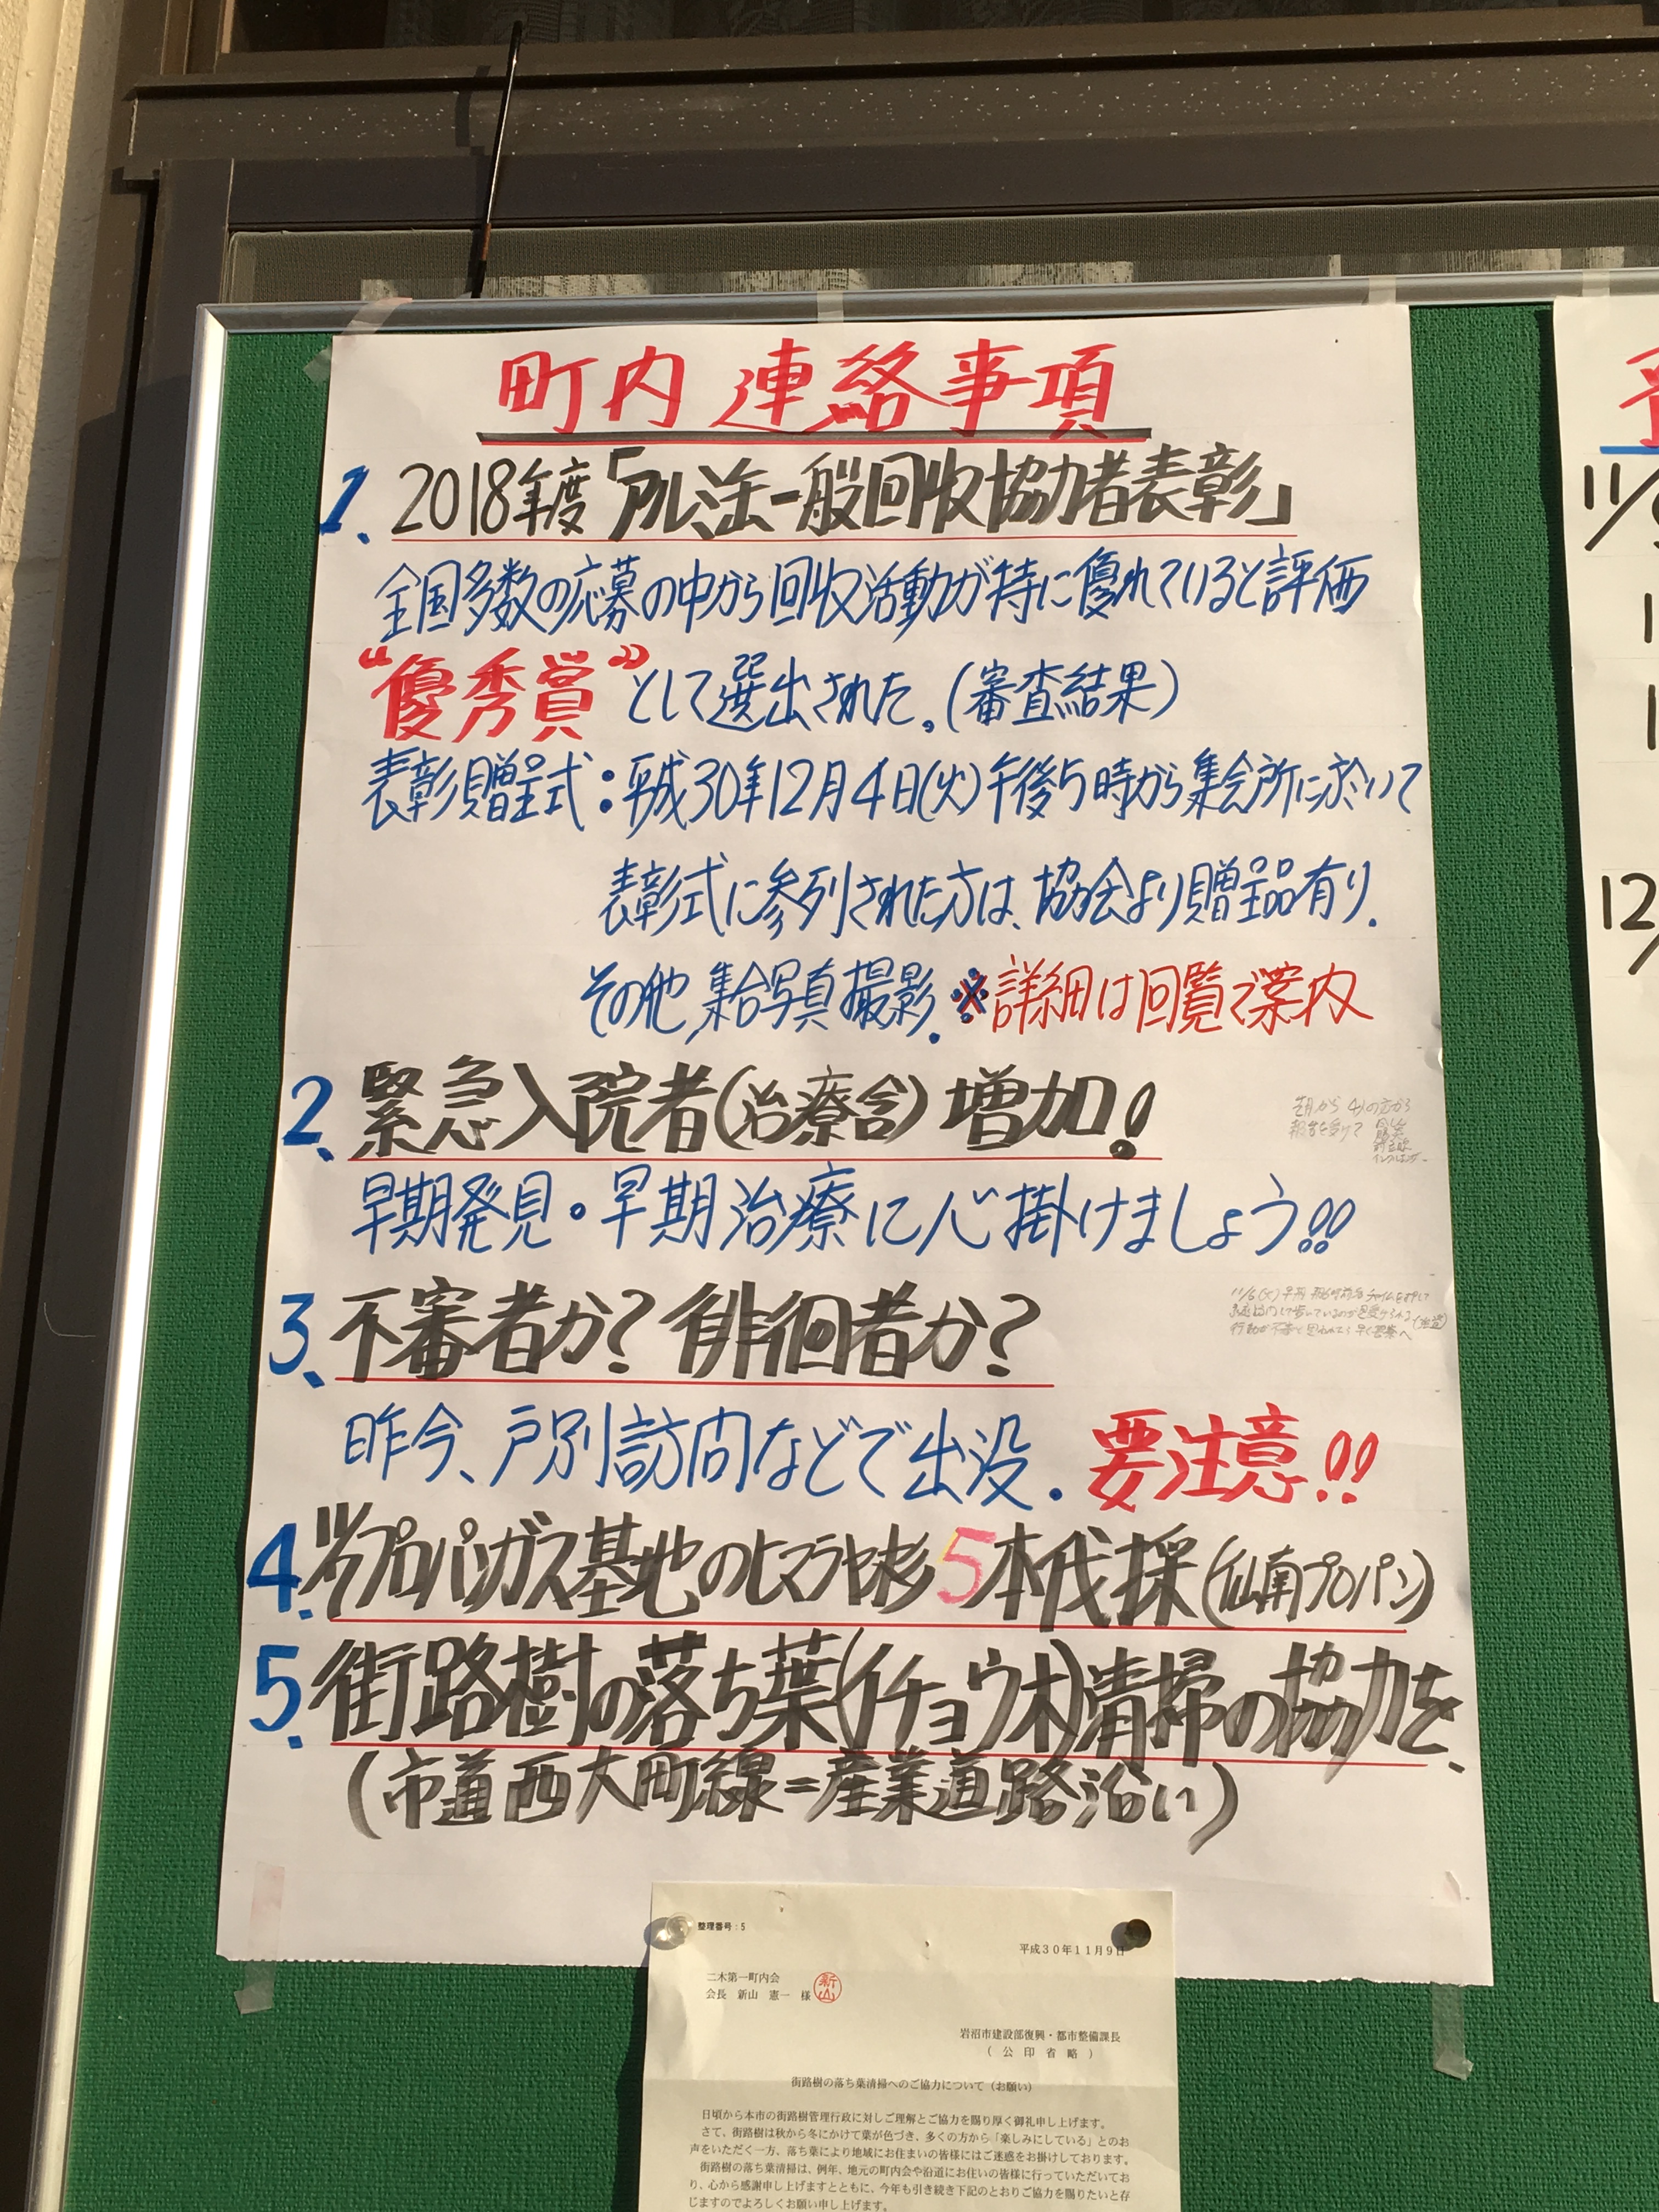 町内連絡事項
1、2018年度「アルミ缶一般回収協力者表彰」
全国多数の応募の中から回収活動が特に優れていると評価
“優秀賞”として選出された。(審査結果)
表彰贈呈式:平成30年12月4日(火)午後5時から集会所に於いて
表彰式に参列された方は、協会より贈呈品有り.
その他、集合写真撮影.※詳細は回覧で案内
2、緊急入院者(治療含)増加!
早期発見・早期治療に心掛けましょう!!
3、不審者か?徘徊者か?
昨今、戸別訪問などで出没.要注意!!
4.11/7プロパンガス基地のヒマラヤ杉5本伐採(仙南プロパン)
5.街路樹の落ち葉(イチョウ木)清掃の協力を、
(市道西大町線=産業道路沿い)
整理番号:5
平成30年11月9日
二木第一町内会
会長 新山 憲一 様
新山
岩沼市建設部復興・都市整備課長
(公印省略)
街路樹の落ち葉清掃へのご協力について(お願い)
日頃から本市の街路樹管理行政に対しご理解とご協力を賜り厚く御礼申し上げます。
さて、街路樹は秋から冬にかけて葉が色づき、多くの方から「楽しみにしている」とのお
声をいただく一方、落ち葉により地域にお住まいの皆様にはご迷惑をお掛けしております。
街路樹の落ち葉清掃は、例年、地元の町内会や沿道にお住いの皆様に行っていただいてお
り、心から感謝申し上げますとともに、今年も引き続き下記のとおりご協力を賜りたいと存
じますのでよろしくお願い申し上げます。
11/
12/